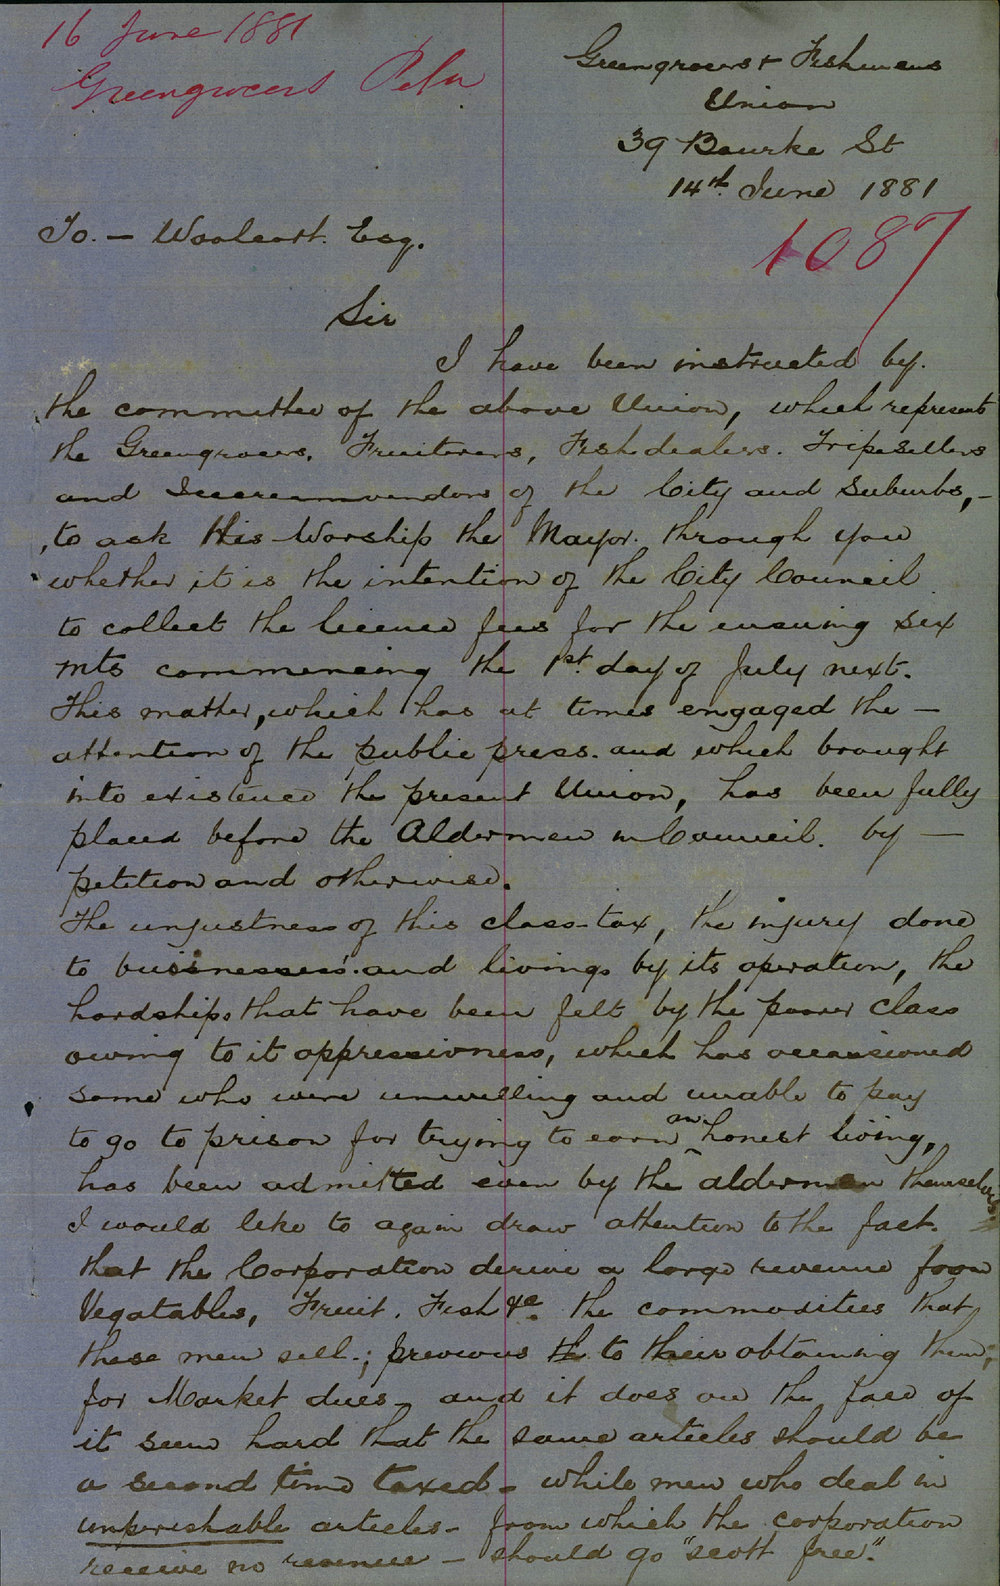 16 June 1881
Greengrocers Petn
Greengrocers & Fishmens
Union
39 Bourke St
14th June 1881
1087
To. — Woolcott. Esq.
Sir
I have been instructed by.
the committee of the above Union, which represents
the Greengrocers, Fruiterers, Fishdealers. Tripesellers
and Icecreamvendors of the City and Suburbs, —
to ask His Worship the Mayor. through you
whether it is the intention of the City Council
to collect the licence fees for the ensuing six
mts commencing the 1st day of July next.
This matter, which has at times engaged the —
attention of the public press. and which brought
into existence the present Union, has been fully
placed before the Aldermen in Council. by —
petition and otherwise.
The unjustness of this class-tax, the injury done
to buisnesses. and livings by its operation, the
hardships that have been felt by the poorer class
owing to it oppressivness, which has occassioned
some who were unwilling and unable to pay
to go to prison for trying to earn an honest living,
has been admitted even by the aldermen themselves
I would like to again draw attention to the fact.
that the Corporation derive a large revenue from
Vegatables, Fruit. Fish &c. the commodities that
these men sell.; previous th to their obtaining them;
for Market dues - and it does on the face of
it seem hard that the same articles should be
a second time taxed - while men who deal in
unperishable articles - from which the corporation
receive no revenue — should go "scott free".